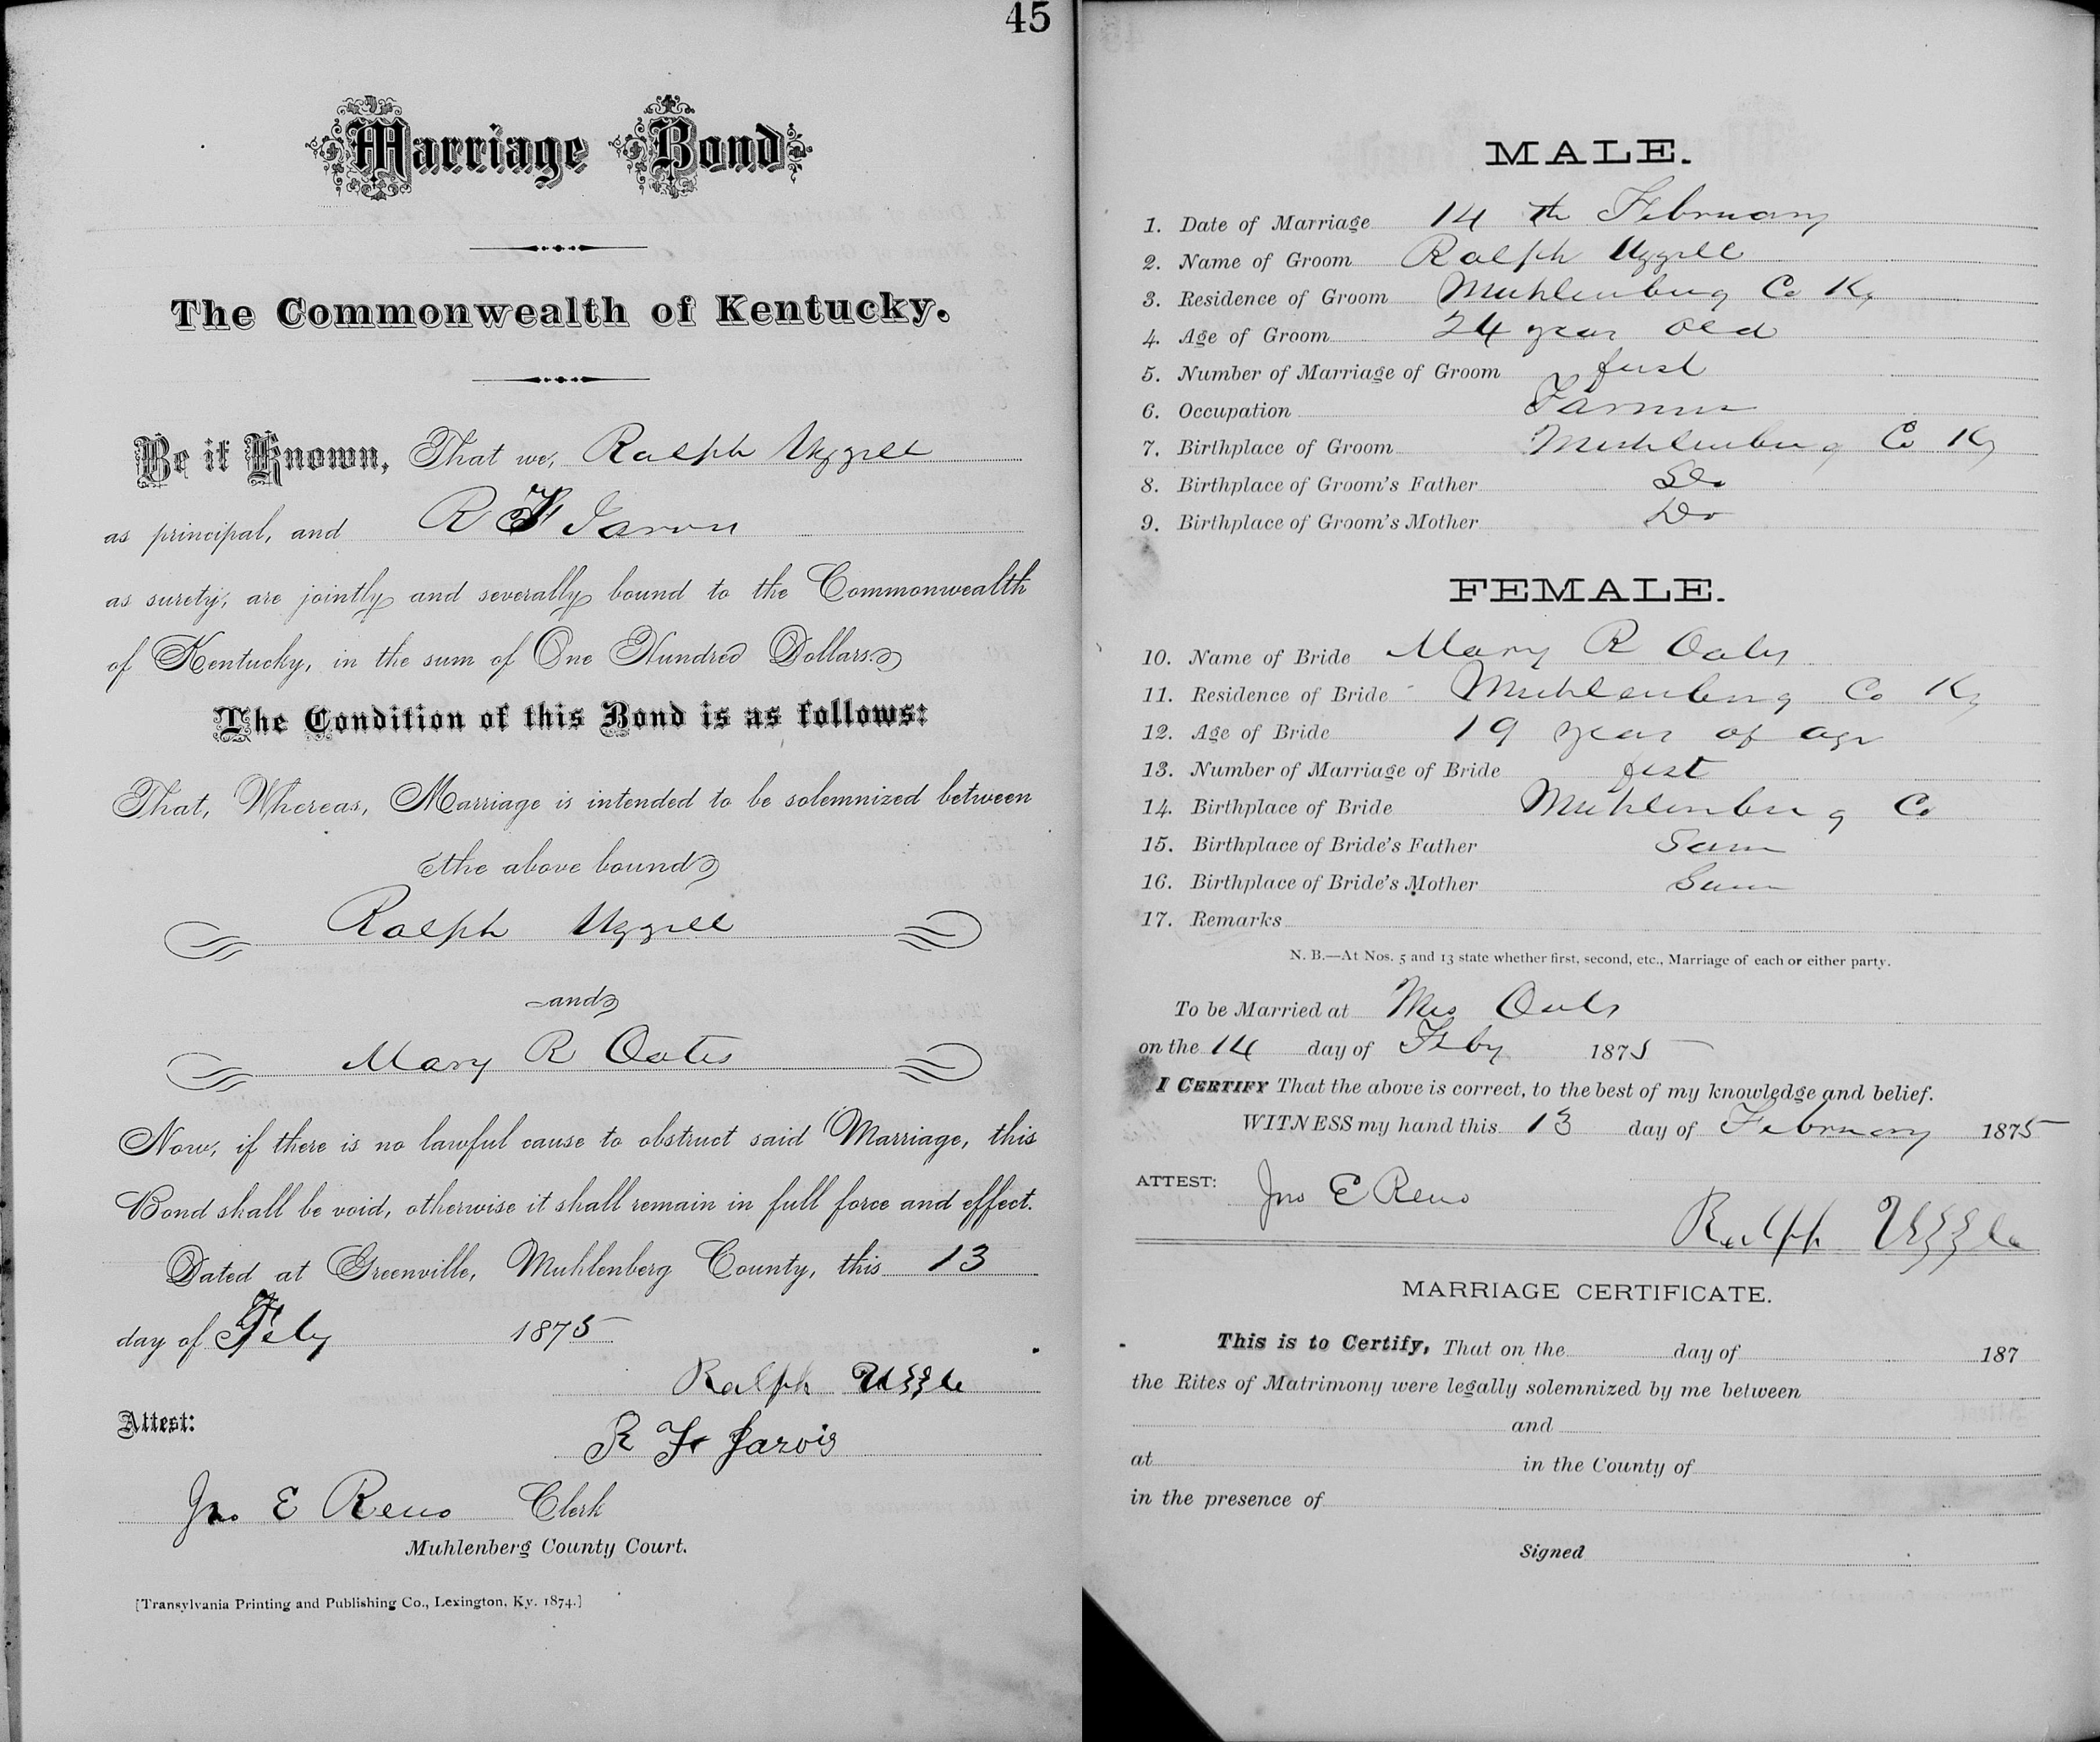 45
Marriage Bond
The Commonwealth of Kentucky.
Be it Known, That we, Ralph Uzzell
as principal, and R F Jarvis
as surety, are jointly and severally bound to the Commonwealth
of Kentucky, in the sum of One Hundred Dollars.
The Condition of this Bond is as follows:
That, Whereas, Marriage is intended to be solemnized between
the above bound
Ralph Uzzell
and
Mary R Oates
Now, if there is no lawful cause to obstruct said Marriage, this
Bond shall be void, otherwise it shall remain in full force and effect.
Dated at Greenville, Muhlenberg County, this 13
day of Feby 1875
Ralph Uzzle
Attest:
R F Jarvis
Jno E Reno Clerk
Muhlenberg County Court.
[Transylvania Printing and Publishing Co., Lexington, Ky. 1874.]
MALE.
1. Date of Marriage 14 th February
2. Name of Groom Ralph Uzzell
3. Residence of Groom Muhlenburg Co Ky
4. Age of Groom 24 year old
5. Number of Marriage of Groom first
6. Occupation Farmer
7. Birthplace of Groom Muhlenburg Co Ky
8. Birthplace of Groom's Father Do
9. Birthplace of Groom's Mother Do
FEMALE.
10. Name of Bride Mary R Oates
11. Residence of Bride Muhlenburg Co Ky
12. Age of Bride 19 year of age
13. Number of Marriage of Bride first
14. Birthplace of Bride Muhlenburg Co
15. Birthplace of Bride's Father Same
16. Birthplace of Bride's Mother Same
17. Remarks
N. B.—At Nos. 5 and 13 state whether first, second, etc., Marriage of each or either party.
To be Married at Mrs Oates
on the 14 day of Feby 1875
I CERTIFY That the above is correct, to the best of my knowledge and belief.
WITNESS my hand this 13 day of February 1875
ATTEST: Jno E Reno
Ralph Uzzle
MARRIAGE CERTIFICATE.
This is to Certify, That on the day of 187
the Rites of Matrimony were legally solemnized by me between
and
at in the County of
in the presence of
Signed